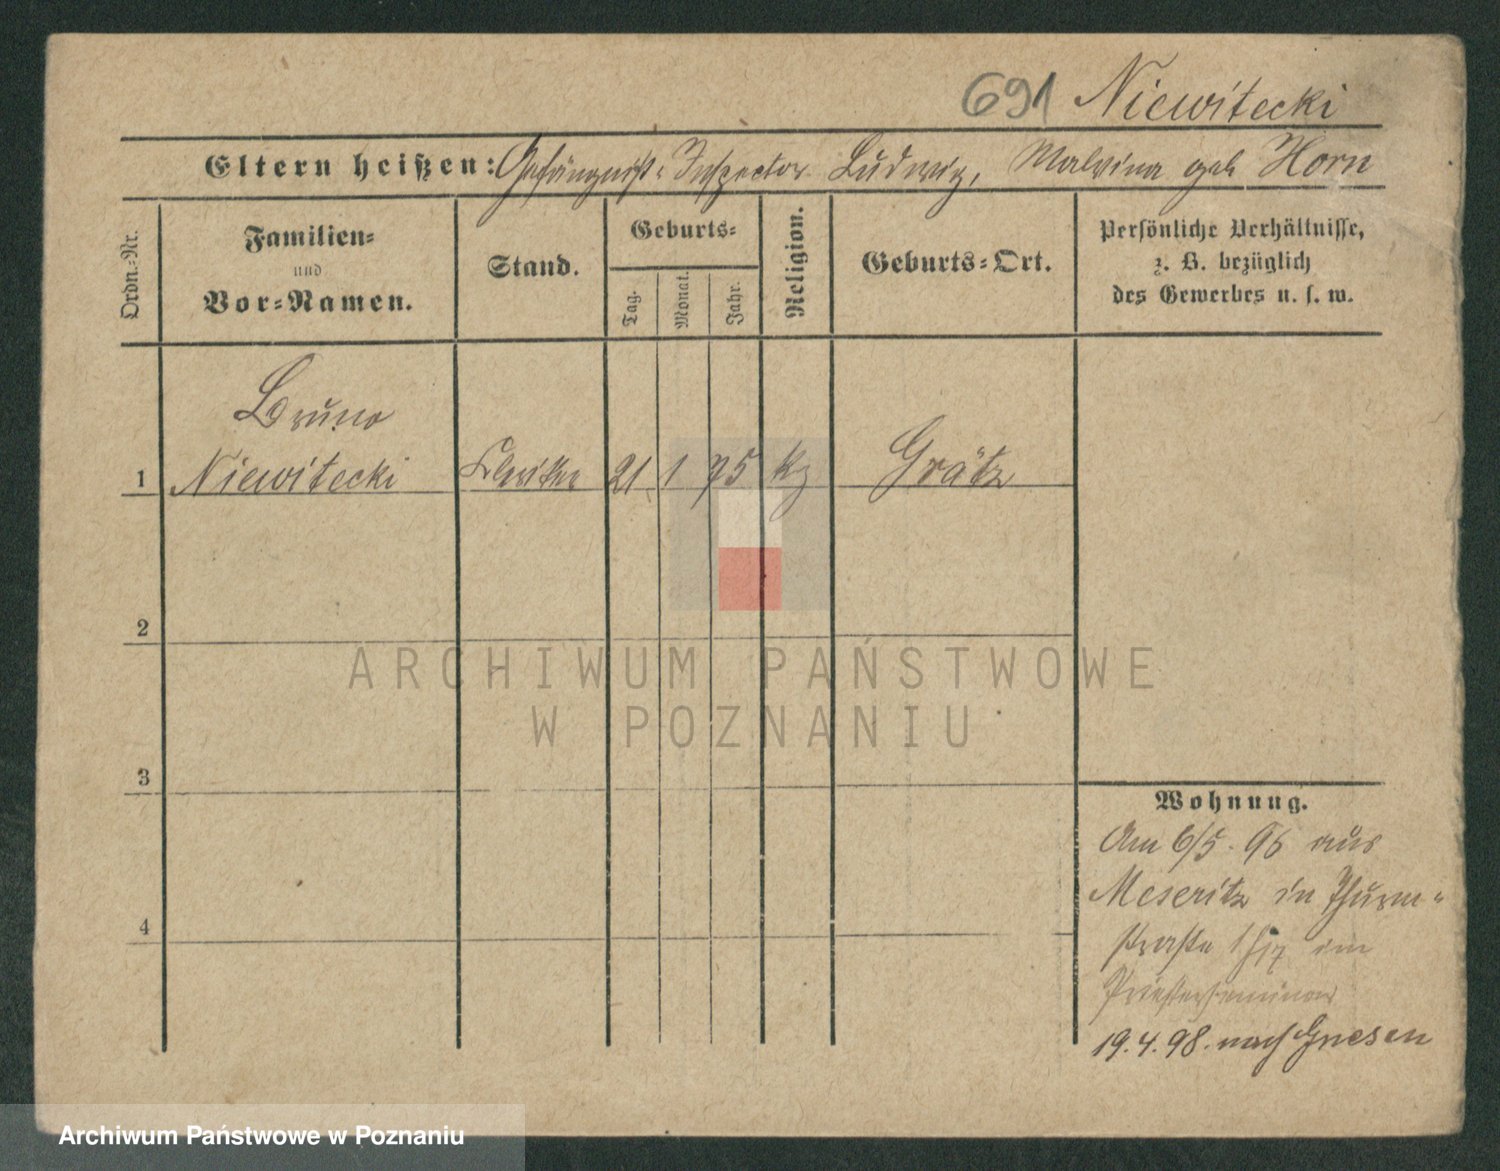 691 Niewitecki
Eltern heißen: Gefängniß-Inspector Ludwig, Malvina geb Horn
Ordn.-Nr.
Familien-
und
Vor-Namen.
Stand.
Geburts-
Tag.
Monat.
Jahr.
Religion.
Geburts-Ort.
Persönliche Verhältnisse,
z. B. bezüglich
des Gewerbes u. s. w.
Bruno
1 Niewitecki Kleriker 21 1 75 Grätz
2
3
4
ARCHIWUM PAŃSTWOWE
W POZNANIU
Wohnung.
Am 6/5. 96 aus
Meseritz in Thurm-
straße im
Priesterseminar
19.4.98. nach Gnesen
Archiwum Państwowe w Poznaniu